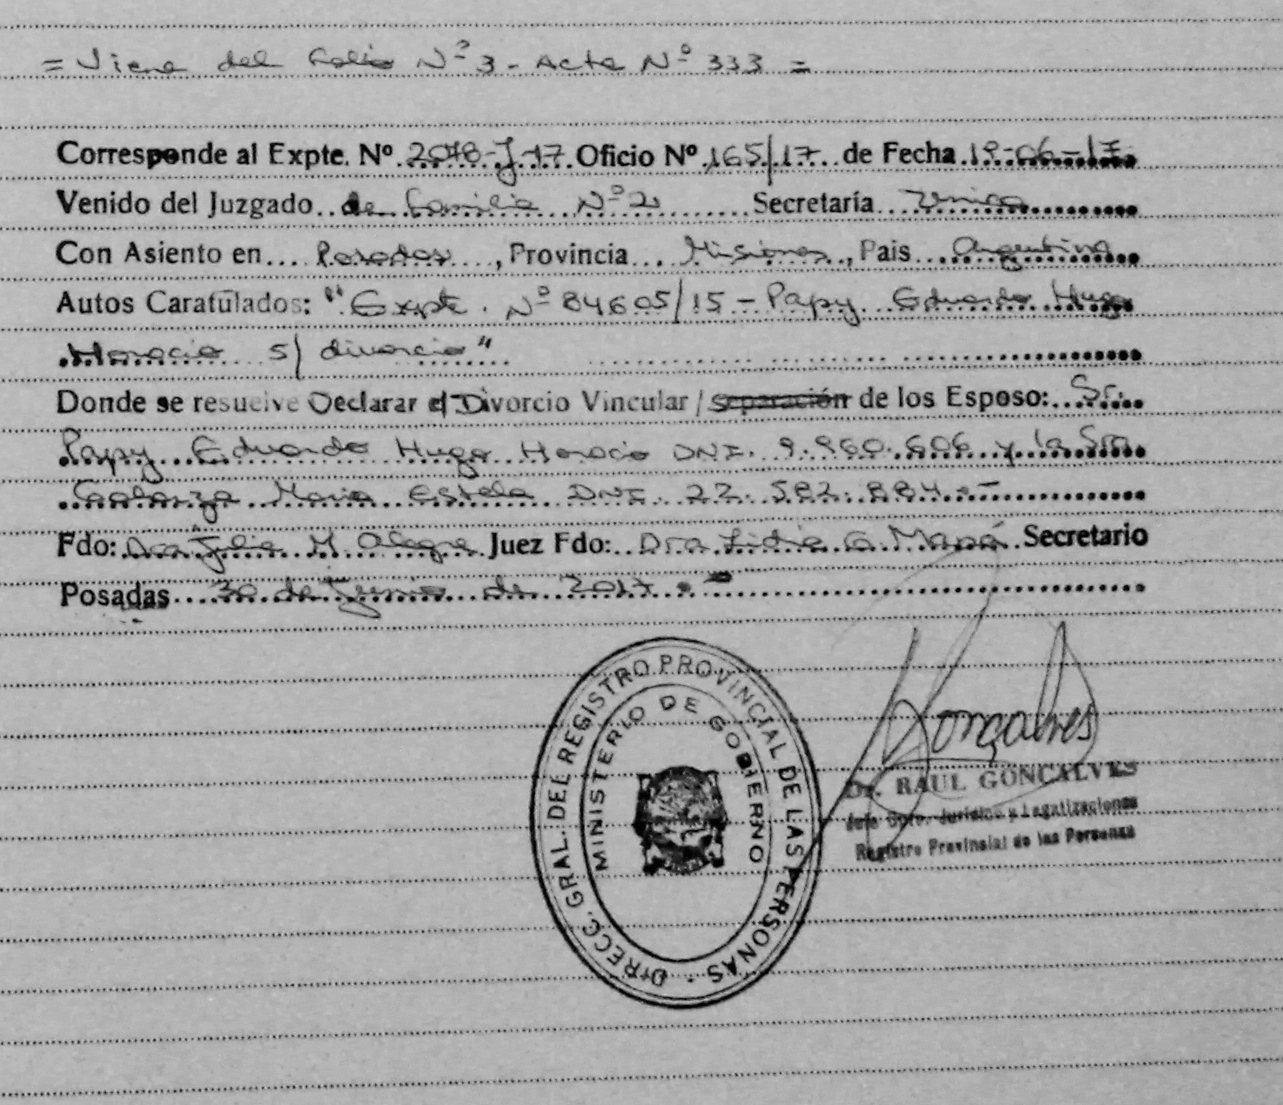 = Viene del Folio Nº 3 - Acta Nº 333 =
Corresponde al Expte. Nº 2078-J-17 Oficio Nº 165/17 de Fecha 19-06-17
Venido del Juzgado de Familia Nº 2 Secretaría Unica
Con Asiento en Posadas, Provincia Misiones, Pais Argentina
Autos Caratulados: "Expte. Nº 84605/15 - Papy Eduardo Hugo
Horacio s/ divorcio"
Donde se resuelve Declarar el Divorcio Vincular / separación de los Esposo: Sr.
Papy Eduardo Hugo Horacio DNI. 9.960.606 y la Sra.
Maria Estela DNI. 22.582.884.-
Fdo: Dra Julia M. Alegre Juez Fdo: Dra. Lidia G. Secretario
Posadas 30 de Junio de 2017.-
DIRECC. GRAL. DEL REGISTRO PROVINCIAL DE LAS PERSONAS
MINISTERIO DE GOBIERNO
Gonçalves
Dr. RAUL GONCALVES
Jefe Dpto. Jurídico y Legalizaciones
Registro Provincial de las Personas